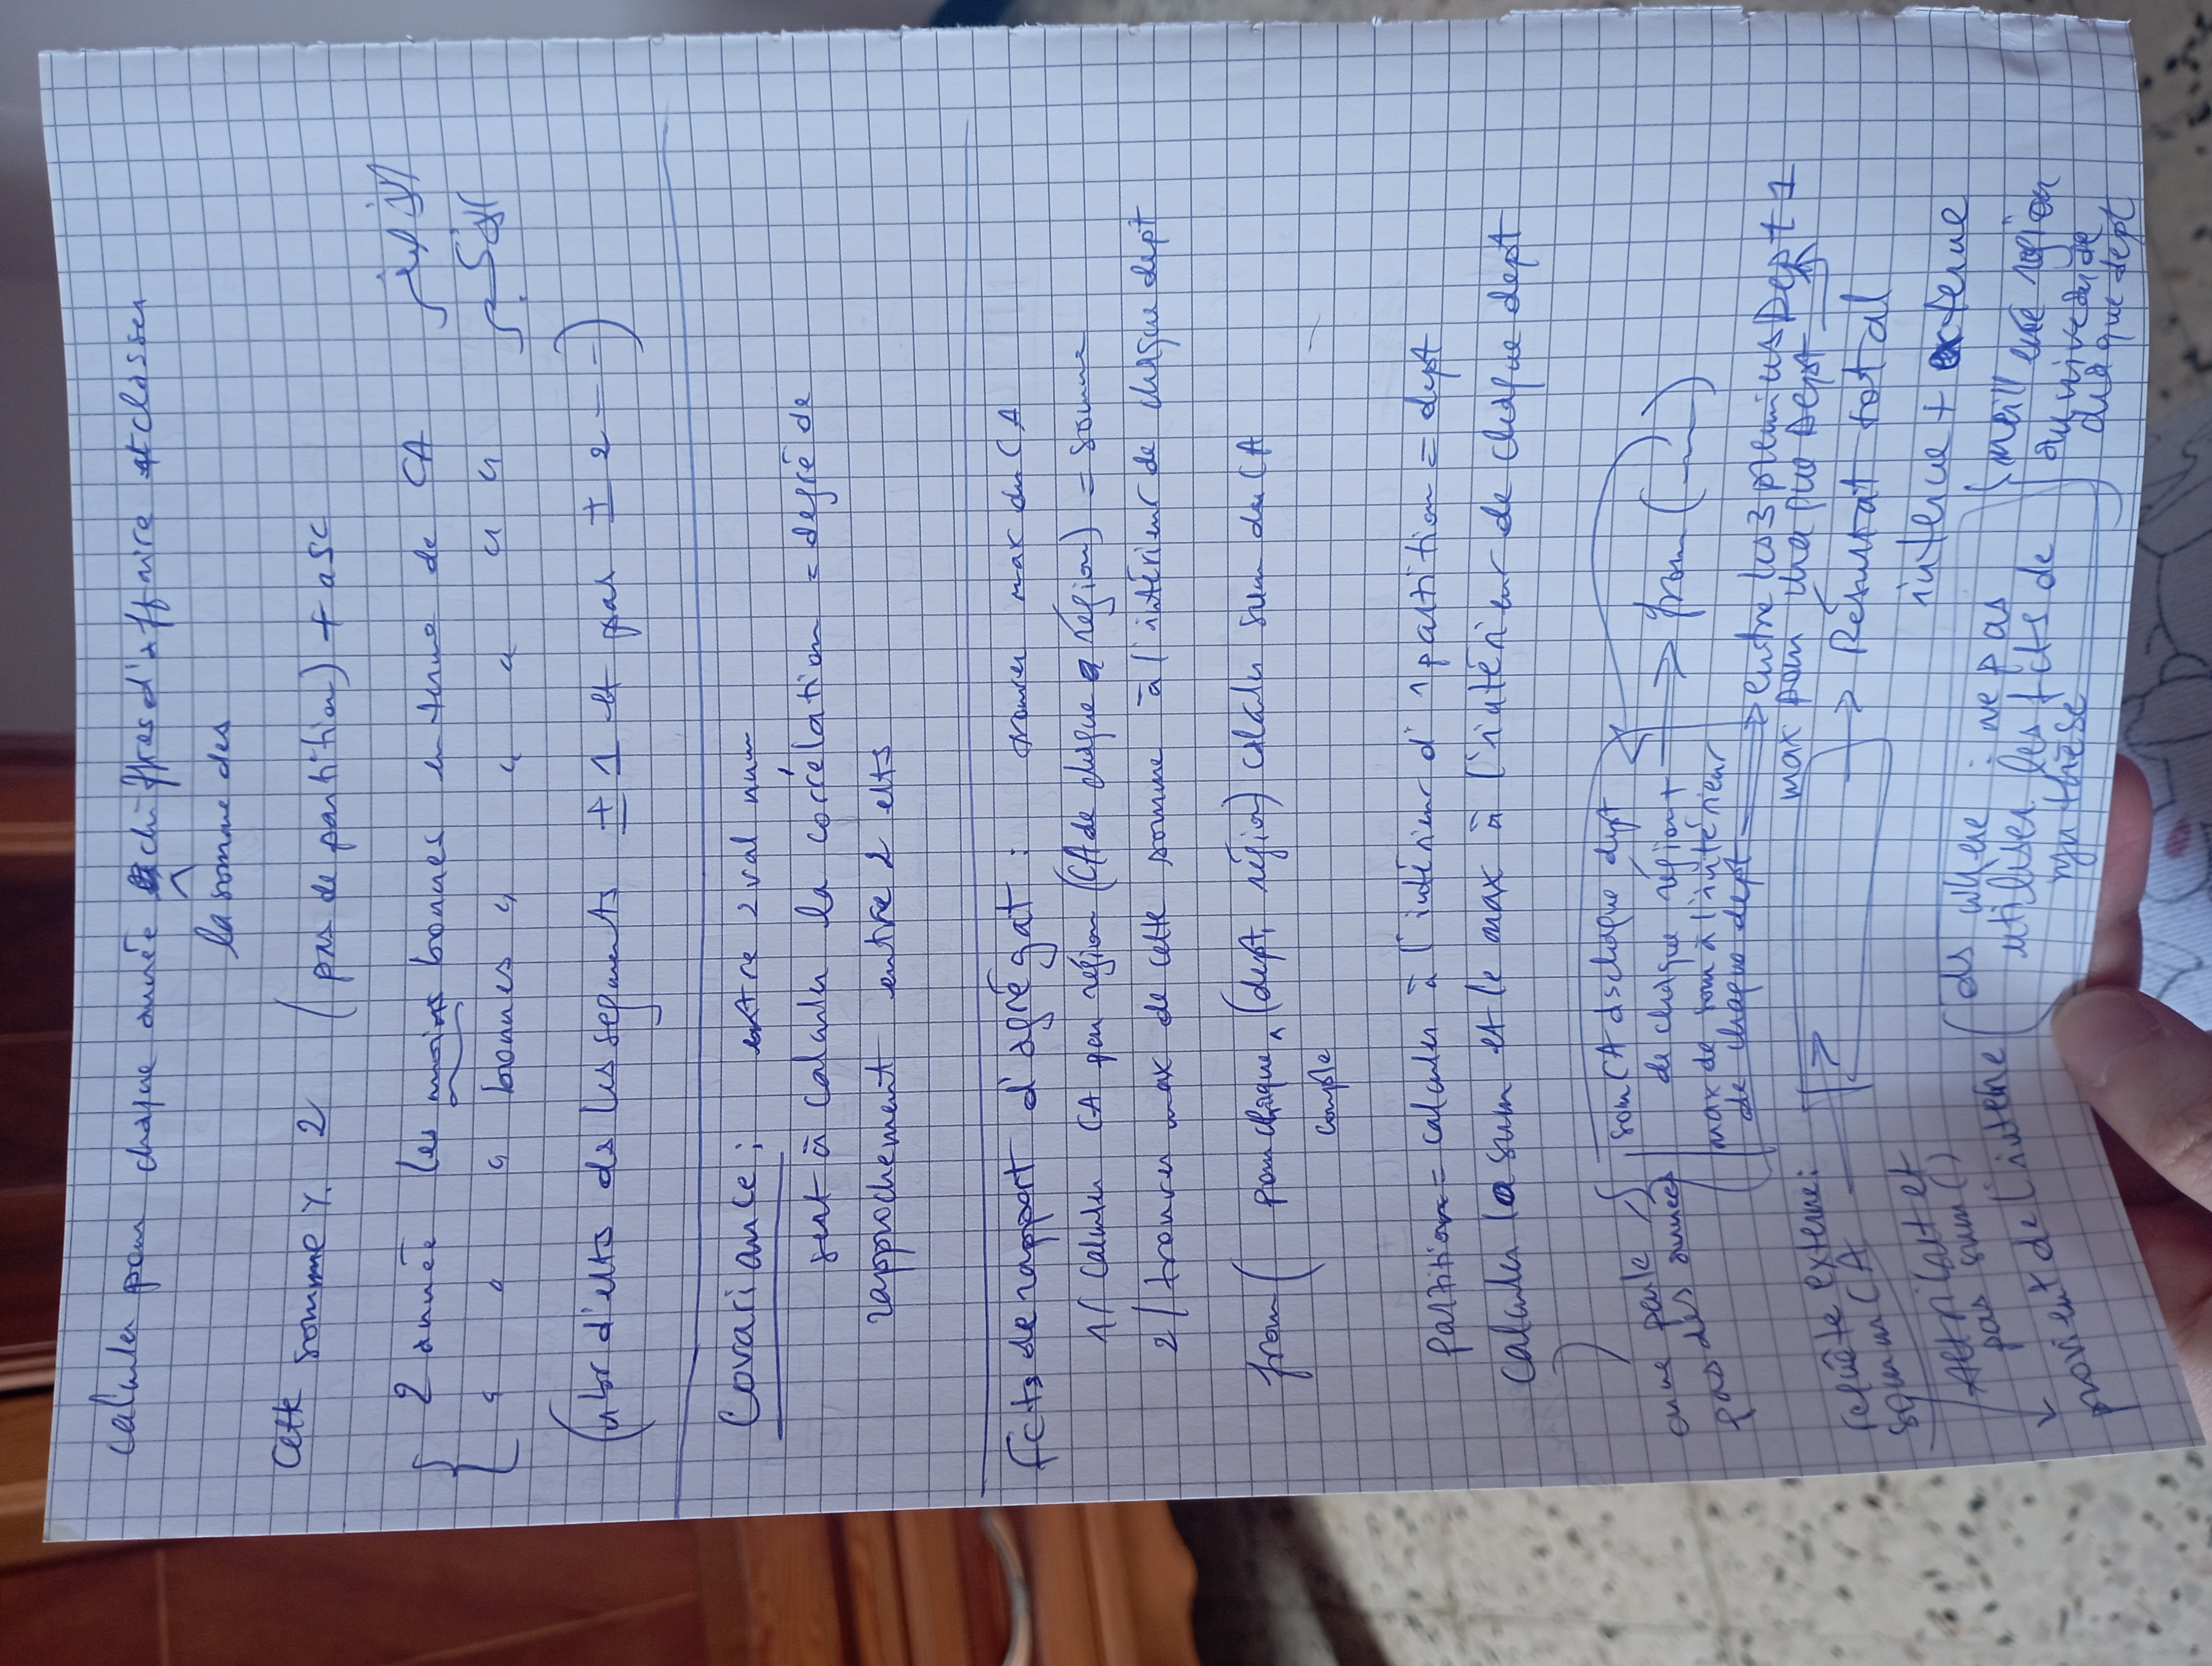 calculer pour chaque année chiffres d'affaire et classer
la somme des
cette somme 2 (pas de partition) + asc
2 année les moins bonnes en terme de CA الأصغر
" " " bonnes " " " " " الأكبر
(nbr d'elts ds les segments ± 1 et pas ± 2 --)
Covariance : entre 2 val num
sert à calculer la corrélation = degré de
rapprochement entre 2 elts
fcts de rapport d'agrégat : trouver max du CA
1/ calculer CA par région (CA de chaque région) = somme
2/ trouver max de cette somme à l'intérieur de chaque dept
from ( pour chaque (dept, région) calculer sum du CA
couple
partition = calculer à l'intérieur d'1 partition = dept
calculer la sum et le max à l'intérieur de chaque dept
on ne parle pas des années
som CA ds chaque dept
de chaque région +
max de som à l'intérieur
de chaque dept
from (---)
entre les 3 premiers Dept 1
max pour chaque Dept
requête externe :
somm CA
Résultat total
interne + externe
Attribut et
pas sum()
provient de l'interne
ds where : ne pas
utiliser les fcts de
synthèse
meilleure région
au niveau de
chaque dept